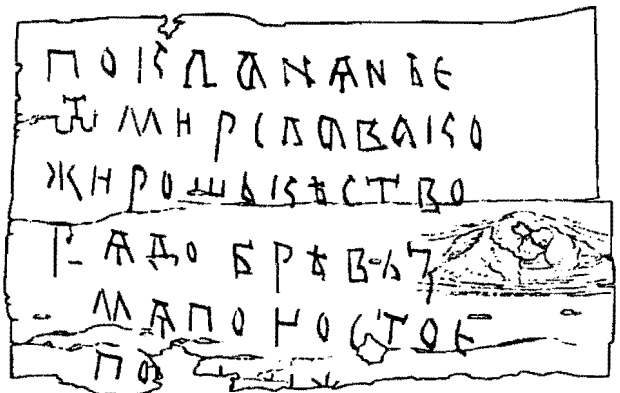 ПОКЛАNѦNЬЕ
ѾМИРСЛАВАКО
ЖИРОШЬКѢСТВО
РѦДОБРѢВЪЗ
МѦПОНОСТОЕ
ПО